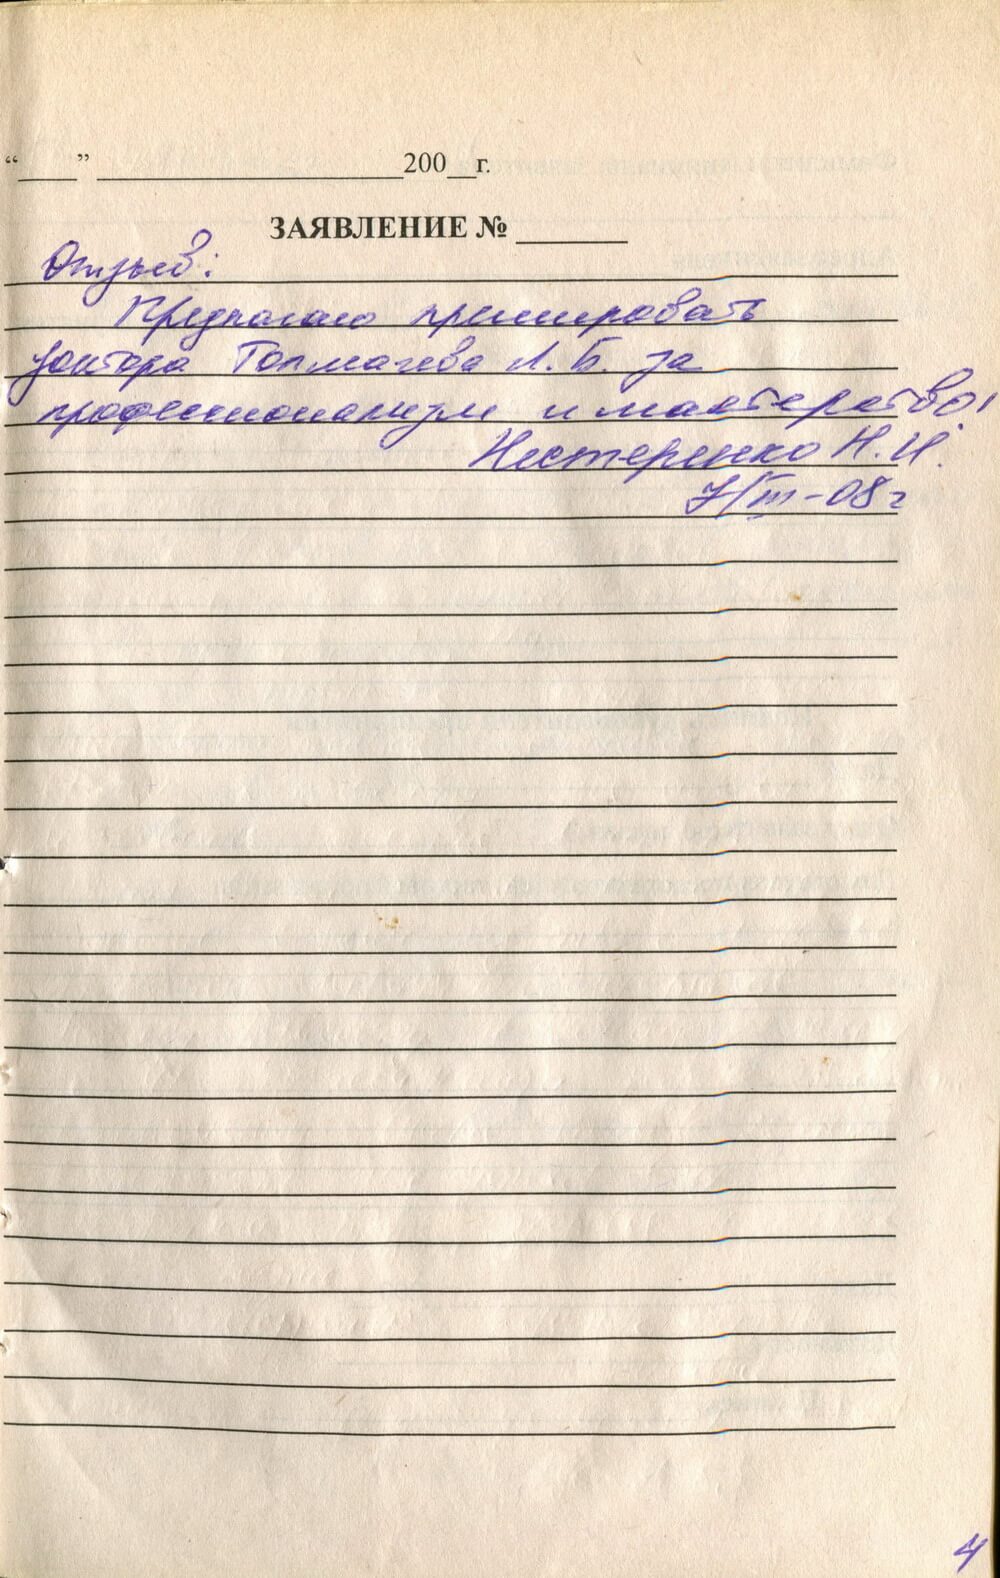 “____” ____________________200__г.
ЗАЯВЛЕНИЕ № _______
Отзыв:
Предлагаю премировать
доктора Толмачева А.Б. за
профессионализм и мастерство!
Нестеренко Н.И.
/III-08г
4